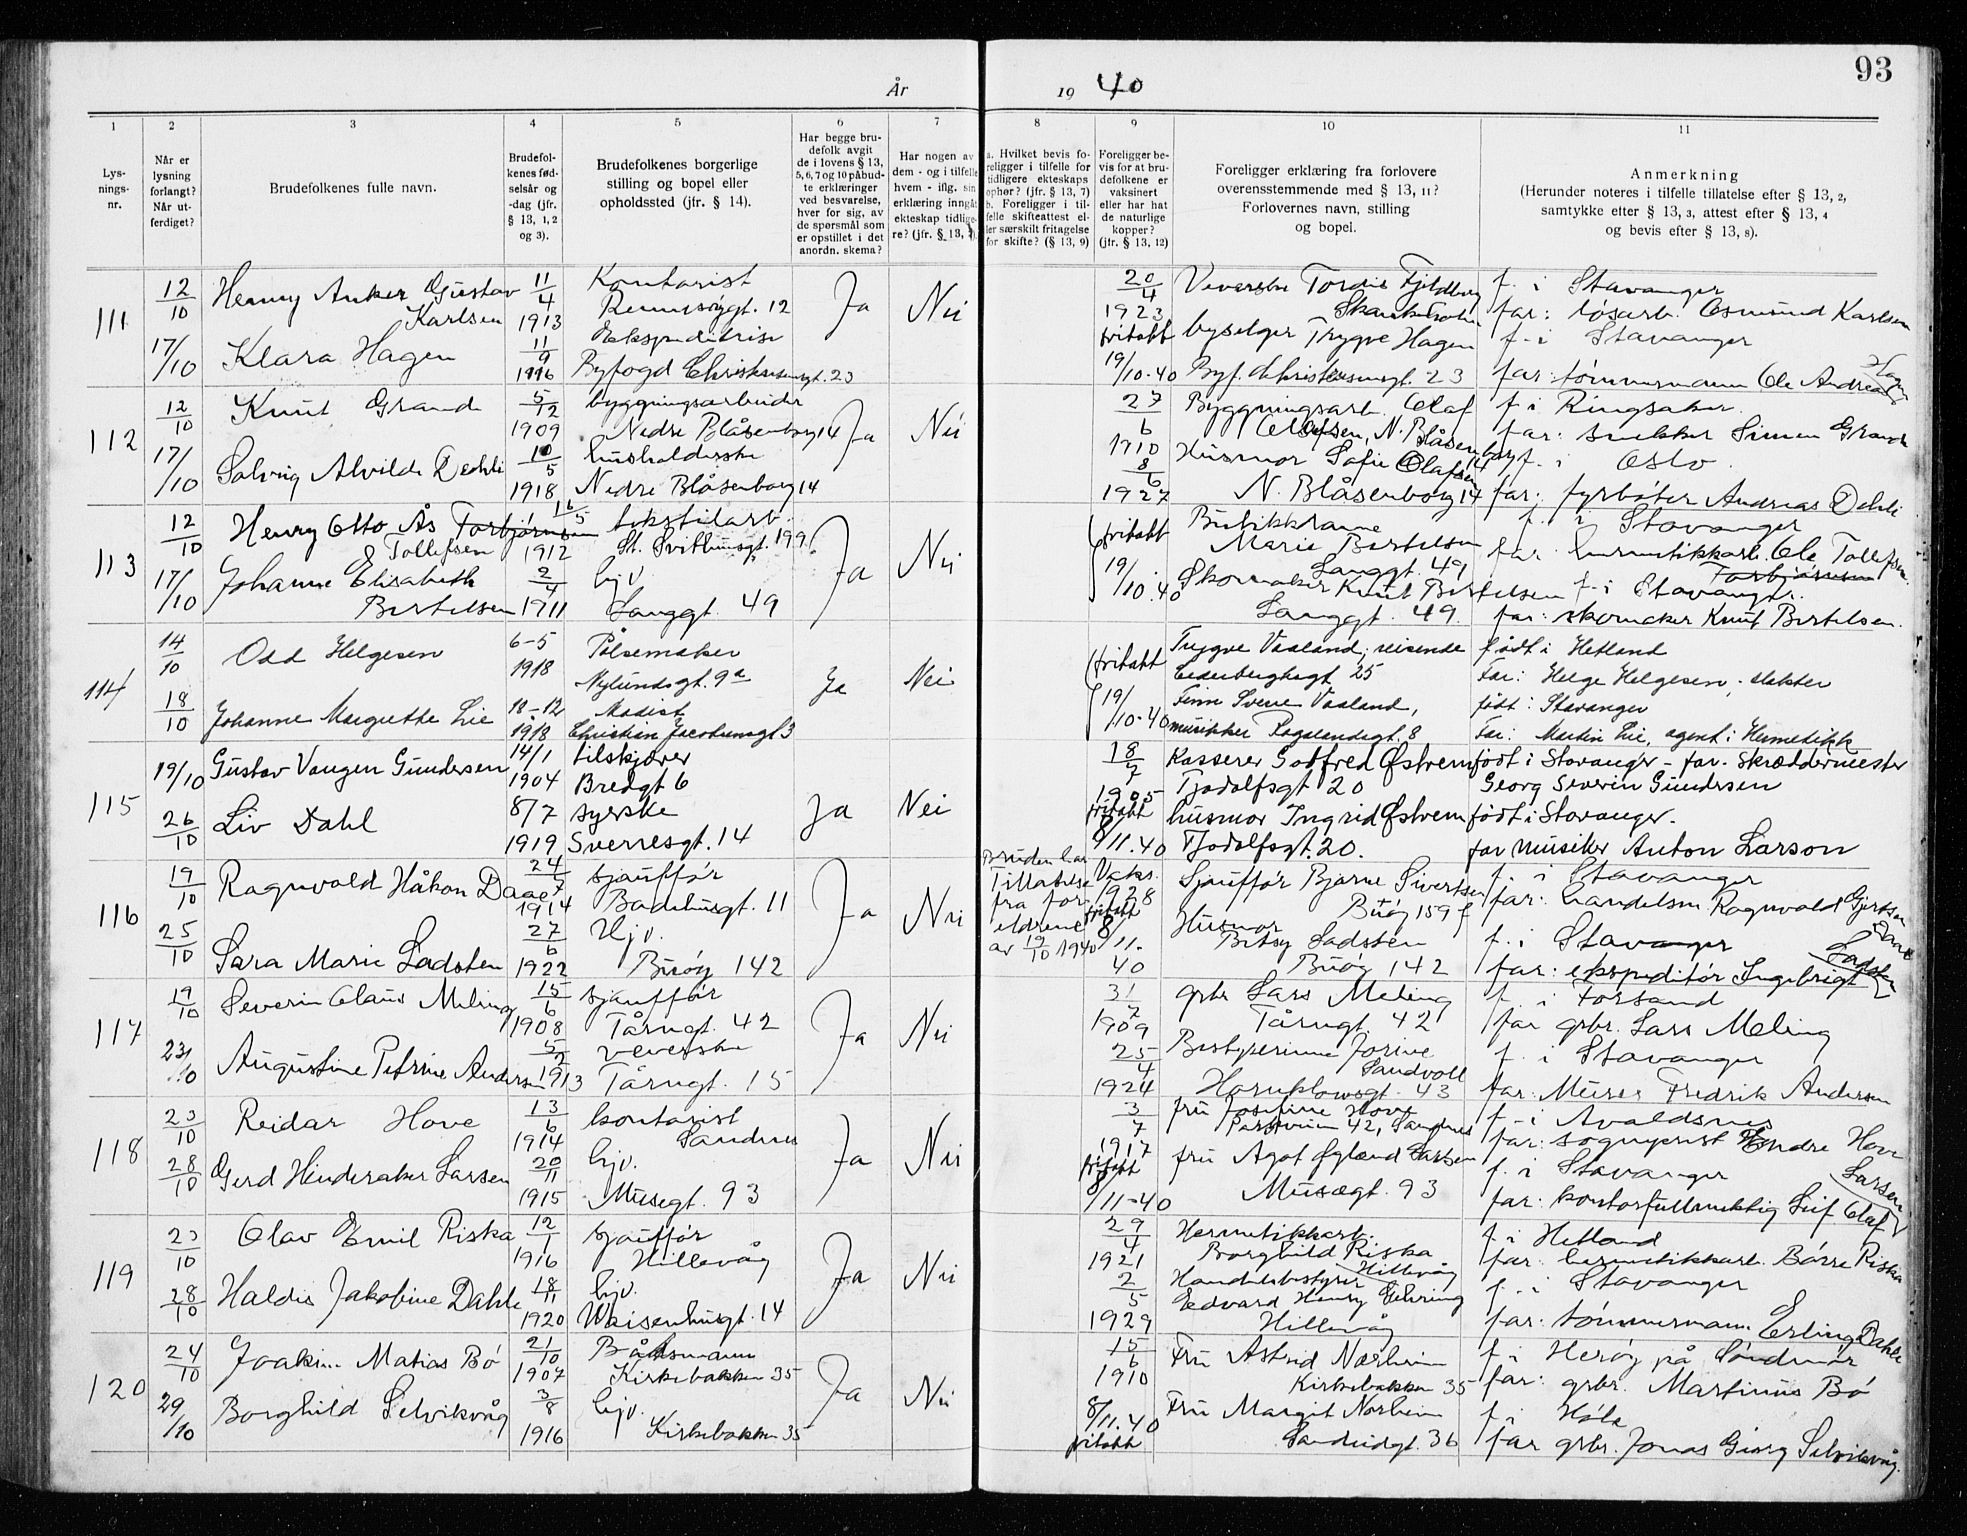 93
År 19 40
1 2 3 4 5 6 7 8 9 10 11
Lys-
nings-
nr.
Når er
lysning
forlangt?
Når ut-
ferdiget?
Brudefolkenes fulle navn.
Brudefol-
kenes fød-
selsår og
-dag (jfr.
§ 13, 1, 2
og 3).
Brudefolkenes borgerlige
stilling og bopel eller
opholdssted (jfr. § 14).
Har begge bru-
defolk avgit
de i lovens § 13,
5, 6, 7 og 10 påbud-
te erklæringer
ved besvarelse,
hver for sig, av
de spørsmål som
er opstillet i det
anordn. skema?
Har nogen av
dem - og i tilfelle
hvem - iflg. sin
erklæring inngåt
ekteskap tidlige-
re? (jfr. § 13, 7).
a. Hvilket bevis fo-
religger i tilfelle for
tidligere ekteskaps
ophør? (jfr. § 13, 7)
b. Foreligger i til-
felle skifteattest el-
ler særskilt fritagelse
for skifte? (§ 13, 9)
Foreligger be-
vis for at bru-
defolkene er
vaksinert
eller har hat
de naturlige
kopper?
(jfr. § 13, 12)
Foreligger erklæring fra forlovere
overensstemmende med § 13, 11?
Forlovernes navn, stilling
og bopel.
Anmerkning
(Herunder noteres i tilfelle tillatelse efter § 13, 2,
samtykke efter § 13, 3, attest efter § 13, 4
og bevis efter § 13, 8).
111
12/10 Henny Anker Gustav
Karlsen
11/4 1913
Kontorist
Rennesøygt. 12
Ja Nei
20/4 1923
Veverske Tordis Fjeldberg
f. i Stavanger
far: løsarb. Osmund Karlsen
17/10 Klara Hagen
11/9 1916
Ekspeditrise
Byfogd Christensensgt. 23
fritatt 19/10-40
byselger Trygve Hagen
Byf. Christensensgt. 23
f. i Stavanger
far: tømmermann Ole Andreas Hagen
112
12/10 Knut Grand
5/12 1909
byggningsarbeider
Nedre Blåsenborg 14
Ja Nei
27/6 1910
Byggningsarb. Olaf
Olafsen, N. Blåsenborg 14
f. i Ringsaker.
far: snekker Simen Grand
17/10 Solvig Alvilde Dehli
10/5 1918
husholderske
Nedre Blåsenborg 14
8/6 1927
Husmor Sofie Olafsen
N. Blåsenborg 14
f. i Oslo
far: fyrbøter Andreas Dehli
113
12/10 Henry Otto Ås Torbjørnsen
Tollefsen
16/5 1912
tekstilarb.
St. Svithunsgt. 199
Ja Nei
fritatt 19/10.40
Butikkranne
Marie Bertelsen
Langgt. 49
f. i Stavanger
far: hermetikkarb. Ole Tollefsen
Torbjørnsen
17/10 Johanne Elisabeth
Bertelsen
2/4 1911
hjv.
Langgt. 49
Skomaker Knut Bertelsen
Langgt. 49.
f. i Stavanger.
far: skomaker Knut Bertelsen.
114
14/10 Odd Helgesen
6-5 1918
Pølsemaker
Nylundsgt. 9a
Ja Nei
fritatt 19/10-40
Trygve Vaaland, reisende
Cederberghsgt 25
født i Hetland
Far: Helge Helgesen, slakter
18/10 Johanne Margrethe Lie
18-12 1918
Modist
Christian Jacobsensgt 3
Finn Sverre Vaaland,
musikker Rogalandsgt. 8
født: Stavanger
Far: Martin Lie, agent i Hermetikk
115
19/10 Gustav Vangen Gundersen
14/1 1904
tilskjærer
Bredgt 6
Ja Nei
18/7 1905
Kasserer Gotfred Østrem
Tjodolfsgt 20
født i Stavanger - far. Skræddermester
Georg Severin Gundersen
26/10 Liv Dahl
8/7 1919
syerske
Sverresgt. 14
fritatt 8/11.40
husmor Ingrid Østrem
Tjodolfsgt. 20.
født i Stavanger.
far musiker Anton Larson
116
19/10 Ragnvald Håkon Daae
24/7 1914
sjauffør
Badehusgt. 11
Ja Nei
Bruden har
Tillatelse
fra for
eldrene
av 19/10 1940
Vaks. 1928
Sjauffør Bjarne Sivertsen
Buøy 159 f
f. i Stavanger
far: handelsm Ragnvald Gjertsen
Daae
25/10 Sara Marie Ladsten
27/6 1922
Hjv.
Buøy 142
fritatt 8/11.40
Husmor
Betsy Ladsten
Buøy 142
f. i Stavanger
far: ekspeditør Ingebrigt Ladsten
117
19/10 Severin Claus Meling
15/6 1908
sjauffør
Tårngt. 42
Ja Nei
31/7 1909
grbr Lars Meling
Tårngt. 42
f. i Forsand
far grbr. Lars Meling
23/10 Augustine Petrine Andersen
5/2 1913
veverske
Tårngt. 15
25/4 1924
Bestyrerinne Jorine
Sandvoll
Hornklowsgt. 43
f. i Stavanger
far: Murer Fredrik Andersen
118
23/10 Reidar Hove
13/6 1914
kontorist
Sandnes
Ja Nei
3/7 1917
fru Josefine Hove
42, Sandnes
f. i Avaldsnes
far: sogneprest Endre Hove
28/10 Gerd Hinderaker Larsen
20/11 1915
hjv.
Musegt. 93
fritatt 8/11-40
fru Agot Øglænd Larsen
Musægt. 93
f. i Stavanger
far: kontorfullmektig Leif Olaf Larsen
119
23/10 Olav Emil Riska
12/1 1916
sjauffør
Hillevåg
Ja Nei
29/4 1921
Hermetikkarb.
Borghild Riska
Hillevåg
f. i Hetland
far: hermetikkarb. Børre Riska
28/10 Haldis Jakobine Dahle
18/11 1920
hjv.
Waisenhusgt. 14
2/5 1929
Handelsbestyrer
Edvard Henry Gehring
Hillevåg
f. i Stavanger
far: tømmermann Erling Dahle
120
24/10 Joakim Matias Bø
21/10 1907
Båtsmann
Kirkebakken 35
Ja Nei
15/6 1910
Fru Astrid Norheim
Kirkebakken 35
f. i Herøy på Søndmør
far: grbr. Martinus Bø
29/10 Borghild Selvikvåg
3/8 1916
hjv.
Kirkebakken 35
8/11.40 fritatt
Fru Margit Norheim
Sandeidgt. 36
f. i Høle
far grbr. Jonas Georg Selvikvåg.